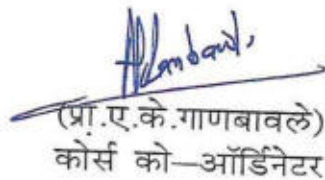 (प्रा.ए.के.गाणबावले)
कोर्स को–ऑर्डिनेटर